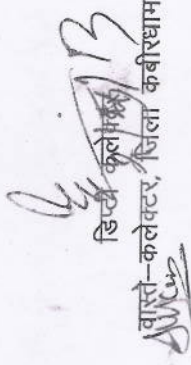 डिप्टी कलेक्टर
वास्ते–कलेक्टर, जिला कबीरधाम